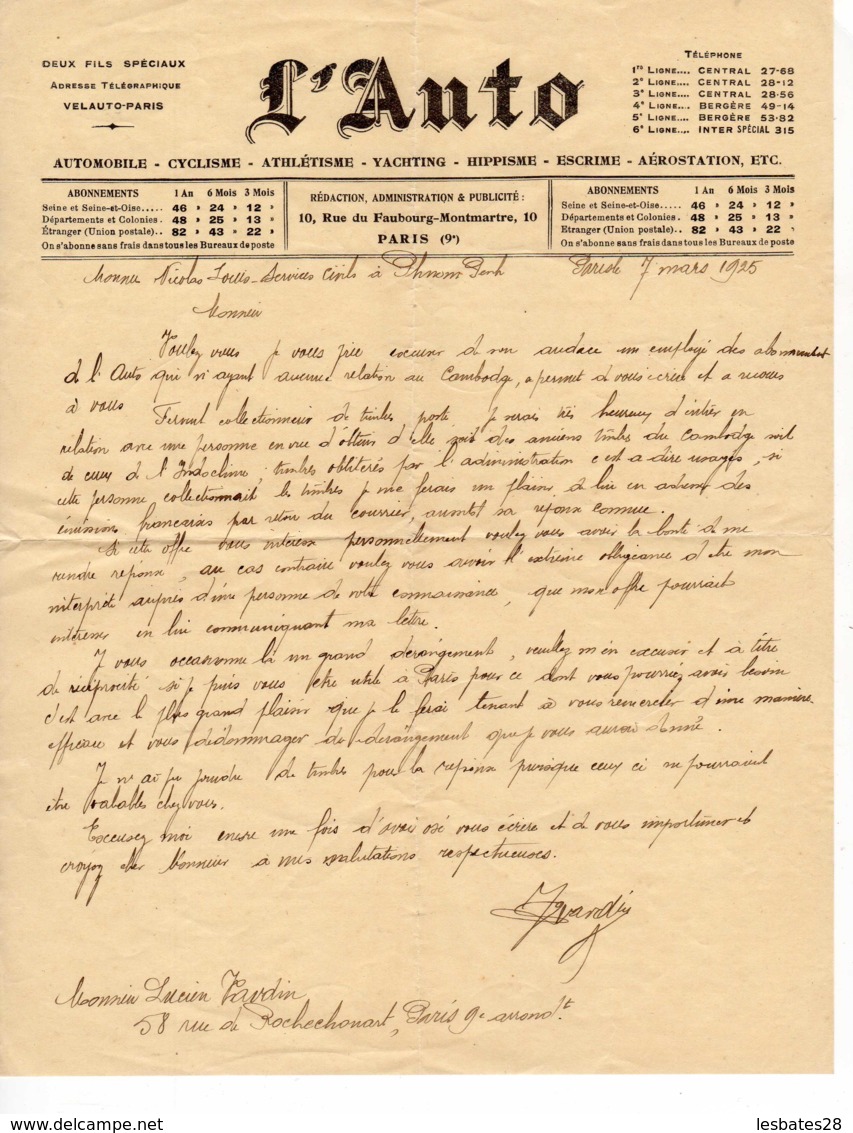 DEUX FILS SPÉCIAUX
ADRESSE TÉLÉGRAPHIQUE
VELAUTO-PARIS
L'Auto
TÉLÉPHONE
1re LIGNE.... CENTRAL 27-68
2e LIGNE.... CENTRAL 28-12
3e LIGNE.... CENTRAL 28-56
4e LIGNE.... BERGÈRE 49-14
5e LIGNE.... BERGÈRE 53-82
6e LIGNE.... INTER SPÉCIAL 315
AUTOMOBILE - CYCLISME - ATHLÉTISME - YACHTING - HIPPISME - ESCRIME - AÉROSTATION, ETC.
ABONNEMENTS 1 An 6 Mois 3 Mois
Seine et Seine-et-Oise..... 46 » 24 » 12 »
Départements et Colonies. 48 » 25 » 13 »
Étranger (Union postale).. 82 » 43 » 22 »
On s'abonne sans frais dans tous les Bureaux de poste
RÉDACTION, ADMINISTRATION & PUBLICITÉ :
10, Rue du Faubourg-Montmartre, 10
PARIS (9e)
ABONNEMENTS 1 An 6 Mois 3 Mois
Seine et Seine-et-Oise..... 46 » 24 » 12 »
Départements et Colonies. 48 » 25 » 13 »
Étranger (Union postale).. 82 » 43 » 22 »
On s'abonne sans frais dans tous les Bureaux de poste
Nicolas Louis - Services Civils à Phnom Penh Paris le 7 mars 1925
Monsieur
Voulez vous je vous prie excuser de son audace un employé des abonnement
de l'Auto qui n'ayant aucune relation au Cambodge, a permet d vous écrire et a recours
à vous
Fervent collectionneur de timbres poste je serais très heureux d'entrer en
relation avec une personne en vue d'obtenir d'elle soit des anciens timbres du Cambodge soit
de ceux de l'Indochine, timbres oblitérés par l'administration c'est a dire usagés, si
cette personne collectionnait les timbres je me ferais un plaisir de lui en adresser des
émissions françaises par retour du courrier, aussitot sa reponse connue.
Si cette offre vous interesse personnellement voulez vous avoir la bonté de me
rendre reponse, au cas contraire voulez vous avoir l'extrème obligeance d'etre mon
interprète auprès d'une personne de votre connaissance, que mon offre pourrait
intéresser en lui communiquant ma lettre.
Je vous occasionne là un grand dérangement, veuillez m'en excuser et à titre
de réciprocité si je puis vous être utile à Paris pour ce dont vous pourriez avoir besoin
c'est avec le plus grand plaisir que je le ferai tenant à vous remercier d'une manière
efficace et vous dédommager du derangement que je vous aurai donné.
Je n'ai pu joindre de timbres pour la reponse puisque ceux ci ne pourraient
etre valables chez vous.
Excusez moi encore une fois d'avoir osé vous écrire et de vous importuner et
croyez cher Monsieur à mes salutations respectueuses.
Monsieur Lucien
58 rue de Rochechouart, Paris 9e arrondt
lesbates28